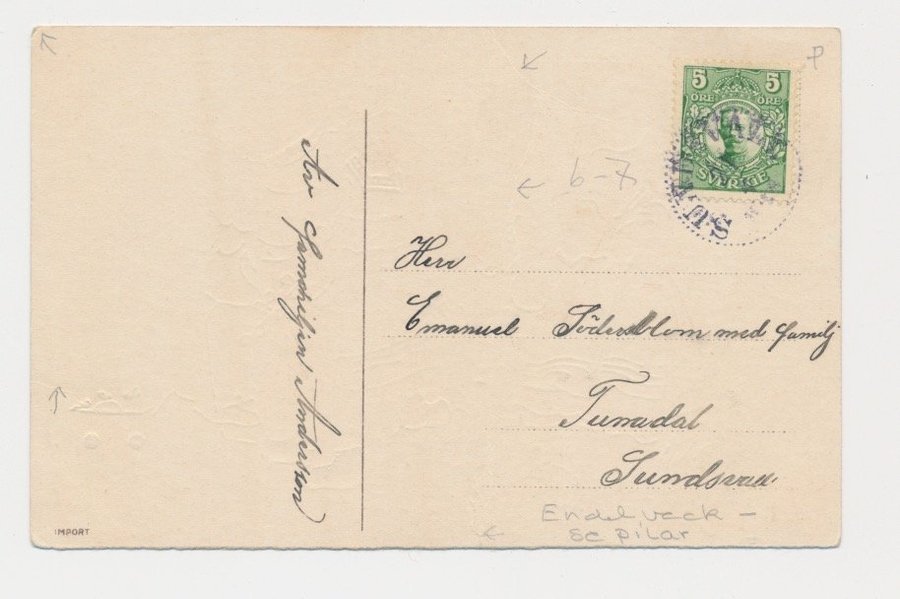 P
5 5
ÖRE ÖRE
SVERIGE
6-7
Av Familjen Andersson
Herr
Emanuel Söderblom med familj
Tunadal
Sundsvall
Endel veck -
se pilar
IMPORT